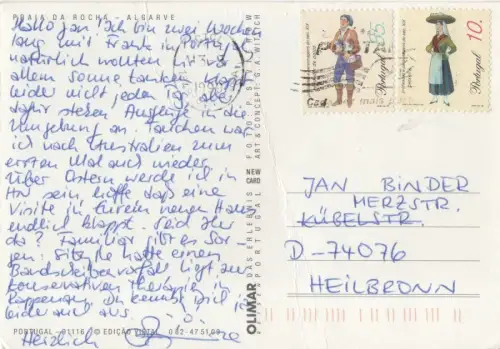 PRAIA DA ROCHA - ALGARVE
Hallo Jan! Ich bin zwei Wochen
lang mit Frank in Portugal
natürlich wollten
allem Sonne tanken, klappt
leider nicht jeden Tag aber
dafür stehen Ausflüge in die
Umgebung an. Tauchen war
ich nach Australien zum
ersten Mal auch wieder.
Über Ostern werde ich in
HN sein, hoffe daß eine
Visite in Eurem neuen Haus
endlich klappt. Seid Ihr
da? Familiär gibt es Sor-
gen: hatte einen
Bandscheibenvorfall, liegt zur
konservativen Therapie in
Löwenstein. Du kennst
leider auch aus.
Herzlich
PORTUGAL - 91116 © EDIÇÃO VISTAL 082-475109
OLIMAR DAS ERLEBNIS
PORTUGAL
NEW CARD
ART & CONCEPT: G.A. WITTICH
Portugal
Portugal
10.
JAN BINDER
MERZSTR.
KÜBELSTR.
D-74076
HEILBRONN